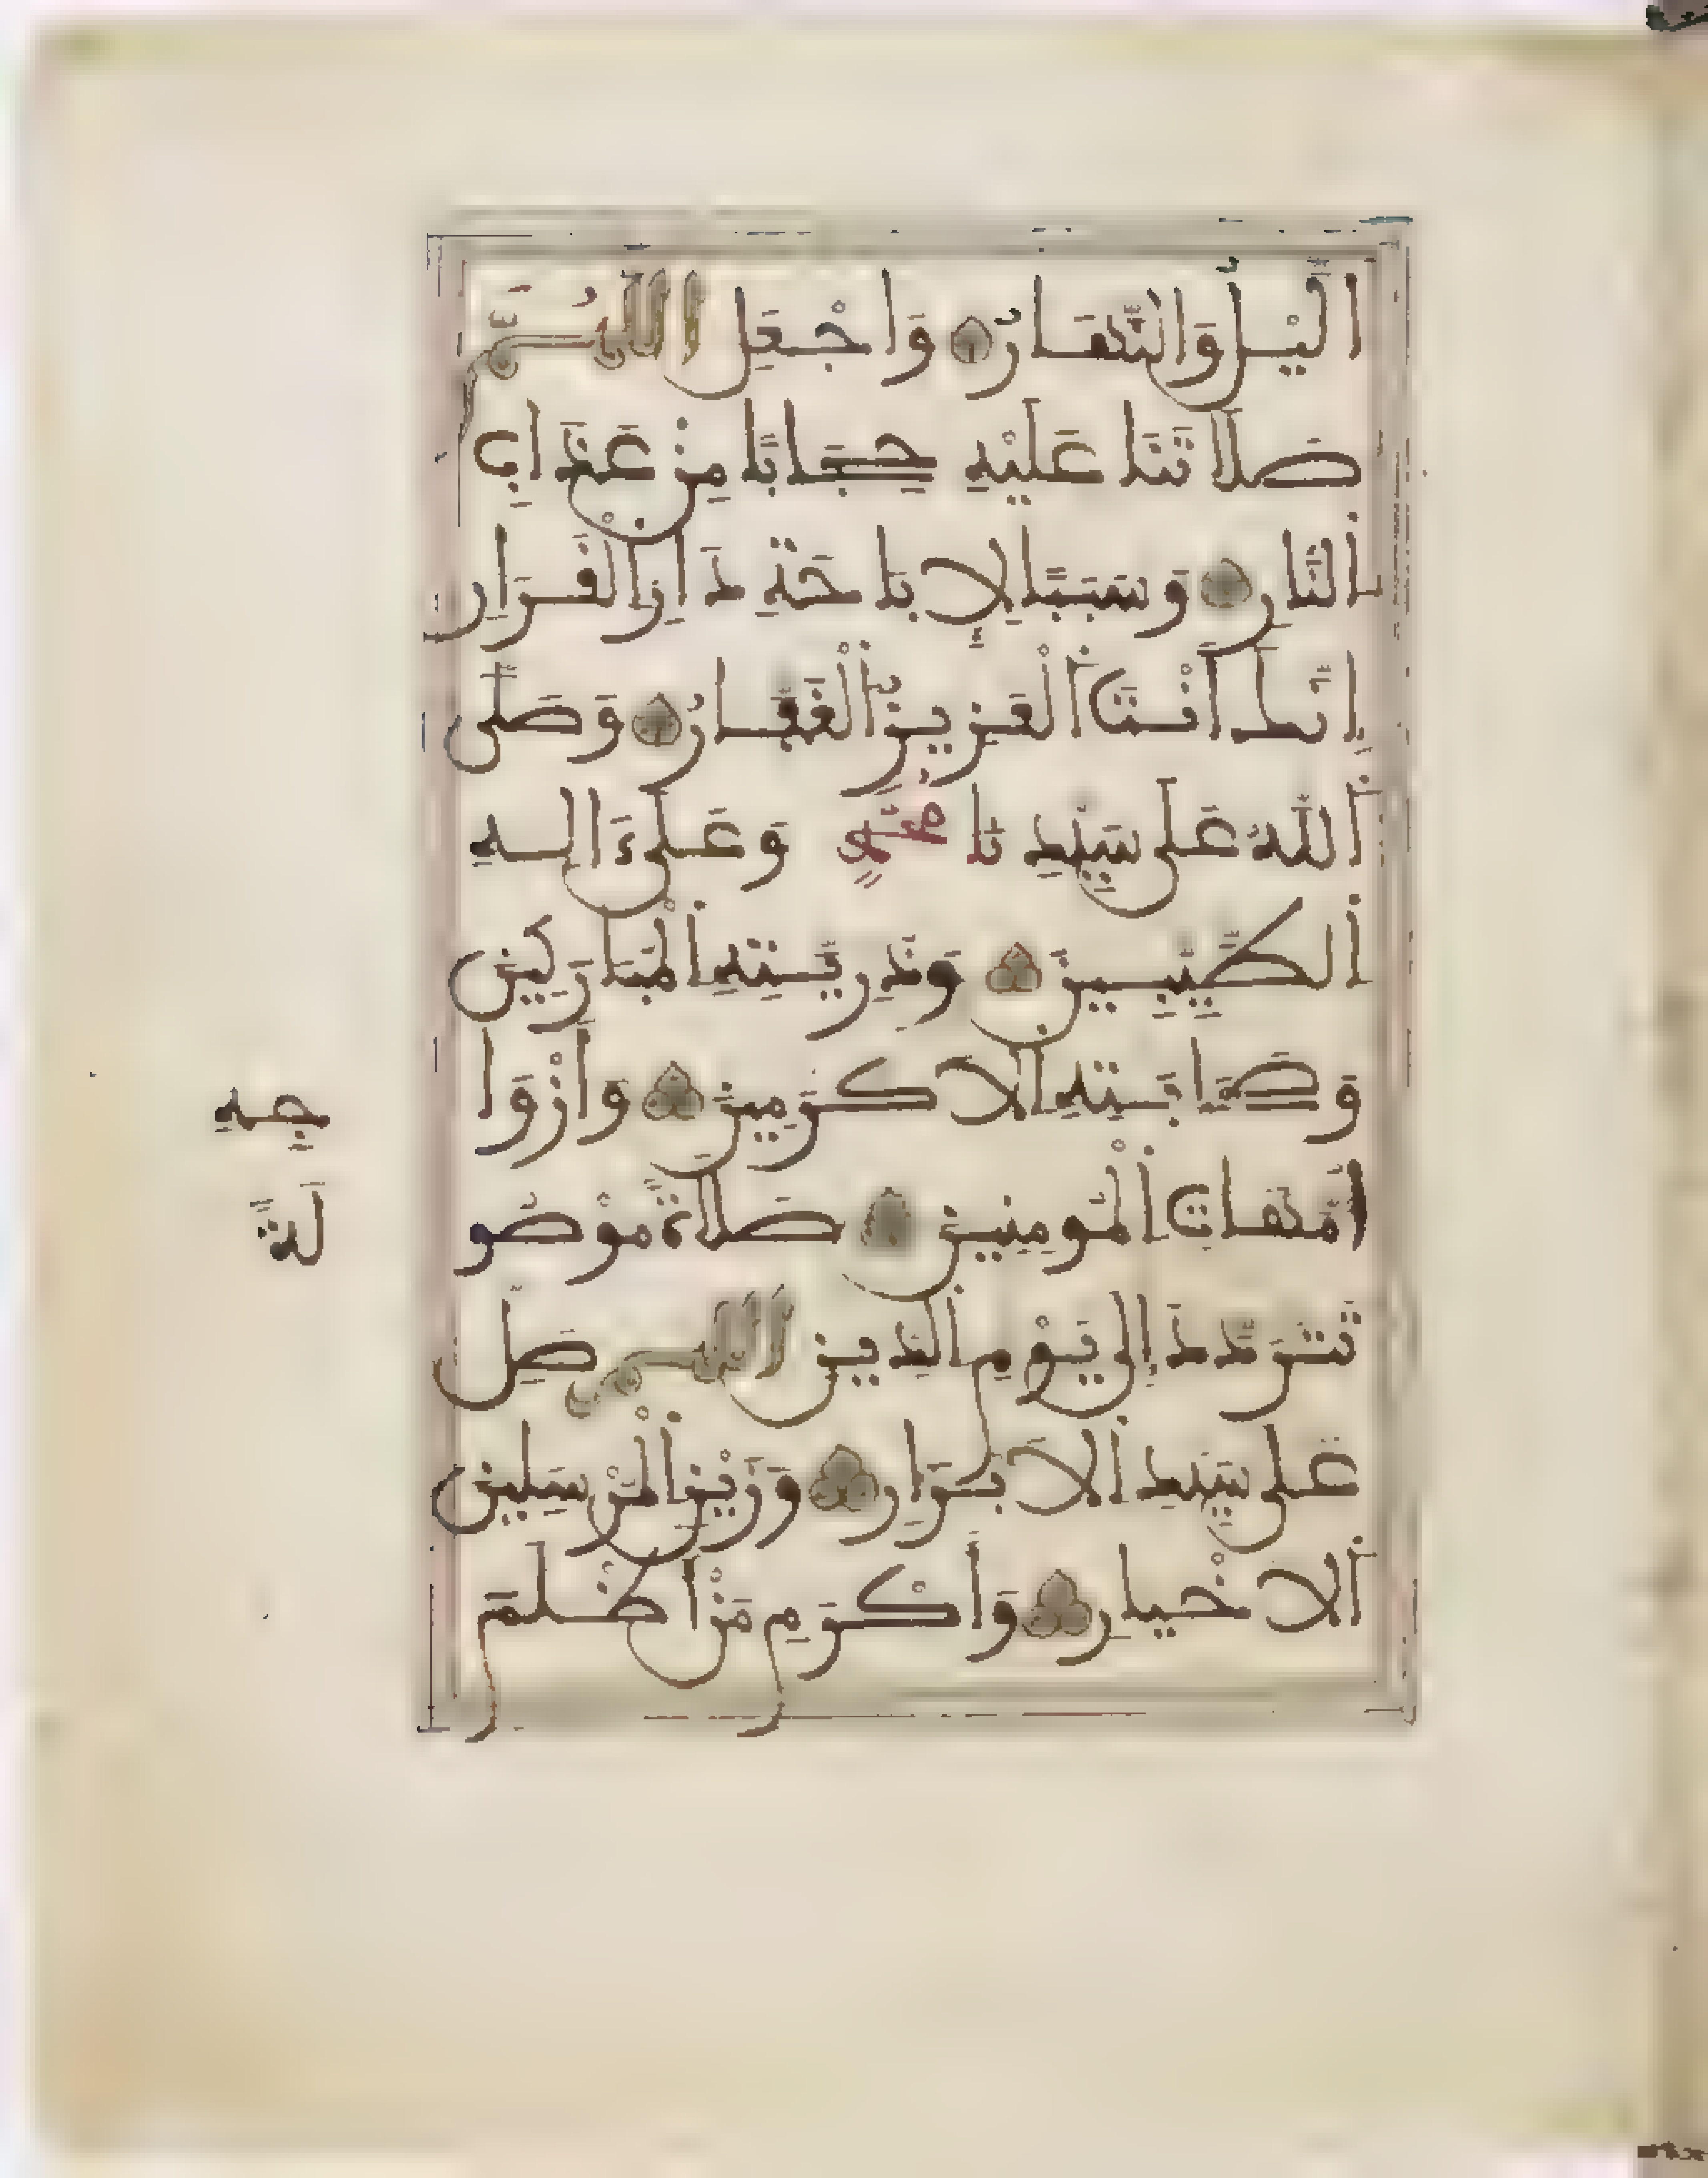 الَّيْلُ وَالنَّهَارُ وَاجْعَلِ اللَّهُمَّ
صَلَاتَنَا عَلَيْهِ حِجَابًا مِنْ عَذَابِ
النَّارِ وَسَبَبًا لِإِبَاحَةِ دَارِ الْقَرَارِ
إِنَّكَ أَنْتَ الْعَزِيزُ الْغَفَّارُ وَصَلَّى
اللَّهُ عَلَى سَيِّدِنَا مُحَمَّدٍ وَعَلَى ءَالِهِ
الطَّيِّبِينَ وَذُرِّيَّتِهِ الْمُبَارَكِينَ
وَصَحَابَتِهِ الْأَكْرَمِينَ وَأَزْوَا
جِهِ
أُمَّهَاتِ الْمُومِنِينَ صَلَاةً مَوْصُو
لَةً
تَتَرَدَّدُ إِلَى يَوْمِ الدِّينِ اللَّهُمَّ صَلِّ
عَلَى سَيِّدِ الْأَبْرَارِ وَزَيْنِ الْمُرْسَلِينَ
الْأَخْيَارِ وَأَكْرَمِ مَنْ أَظْلَمَ